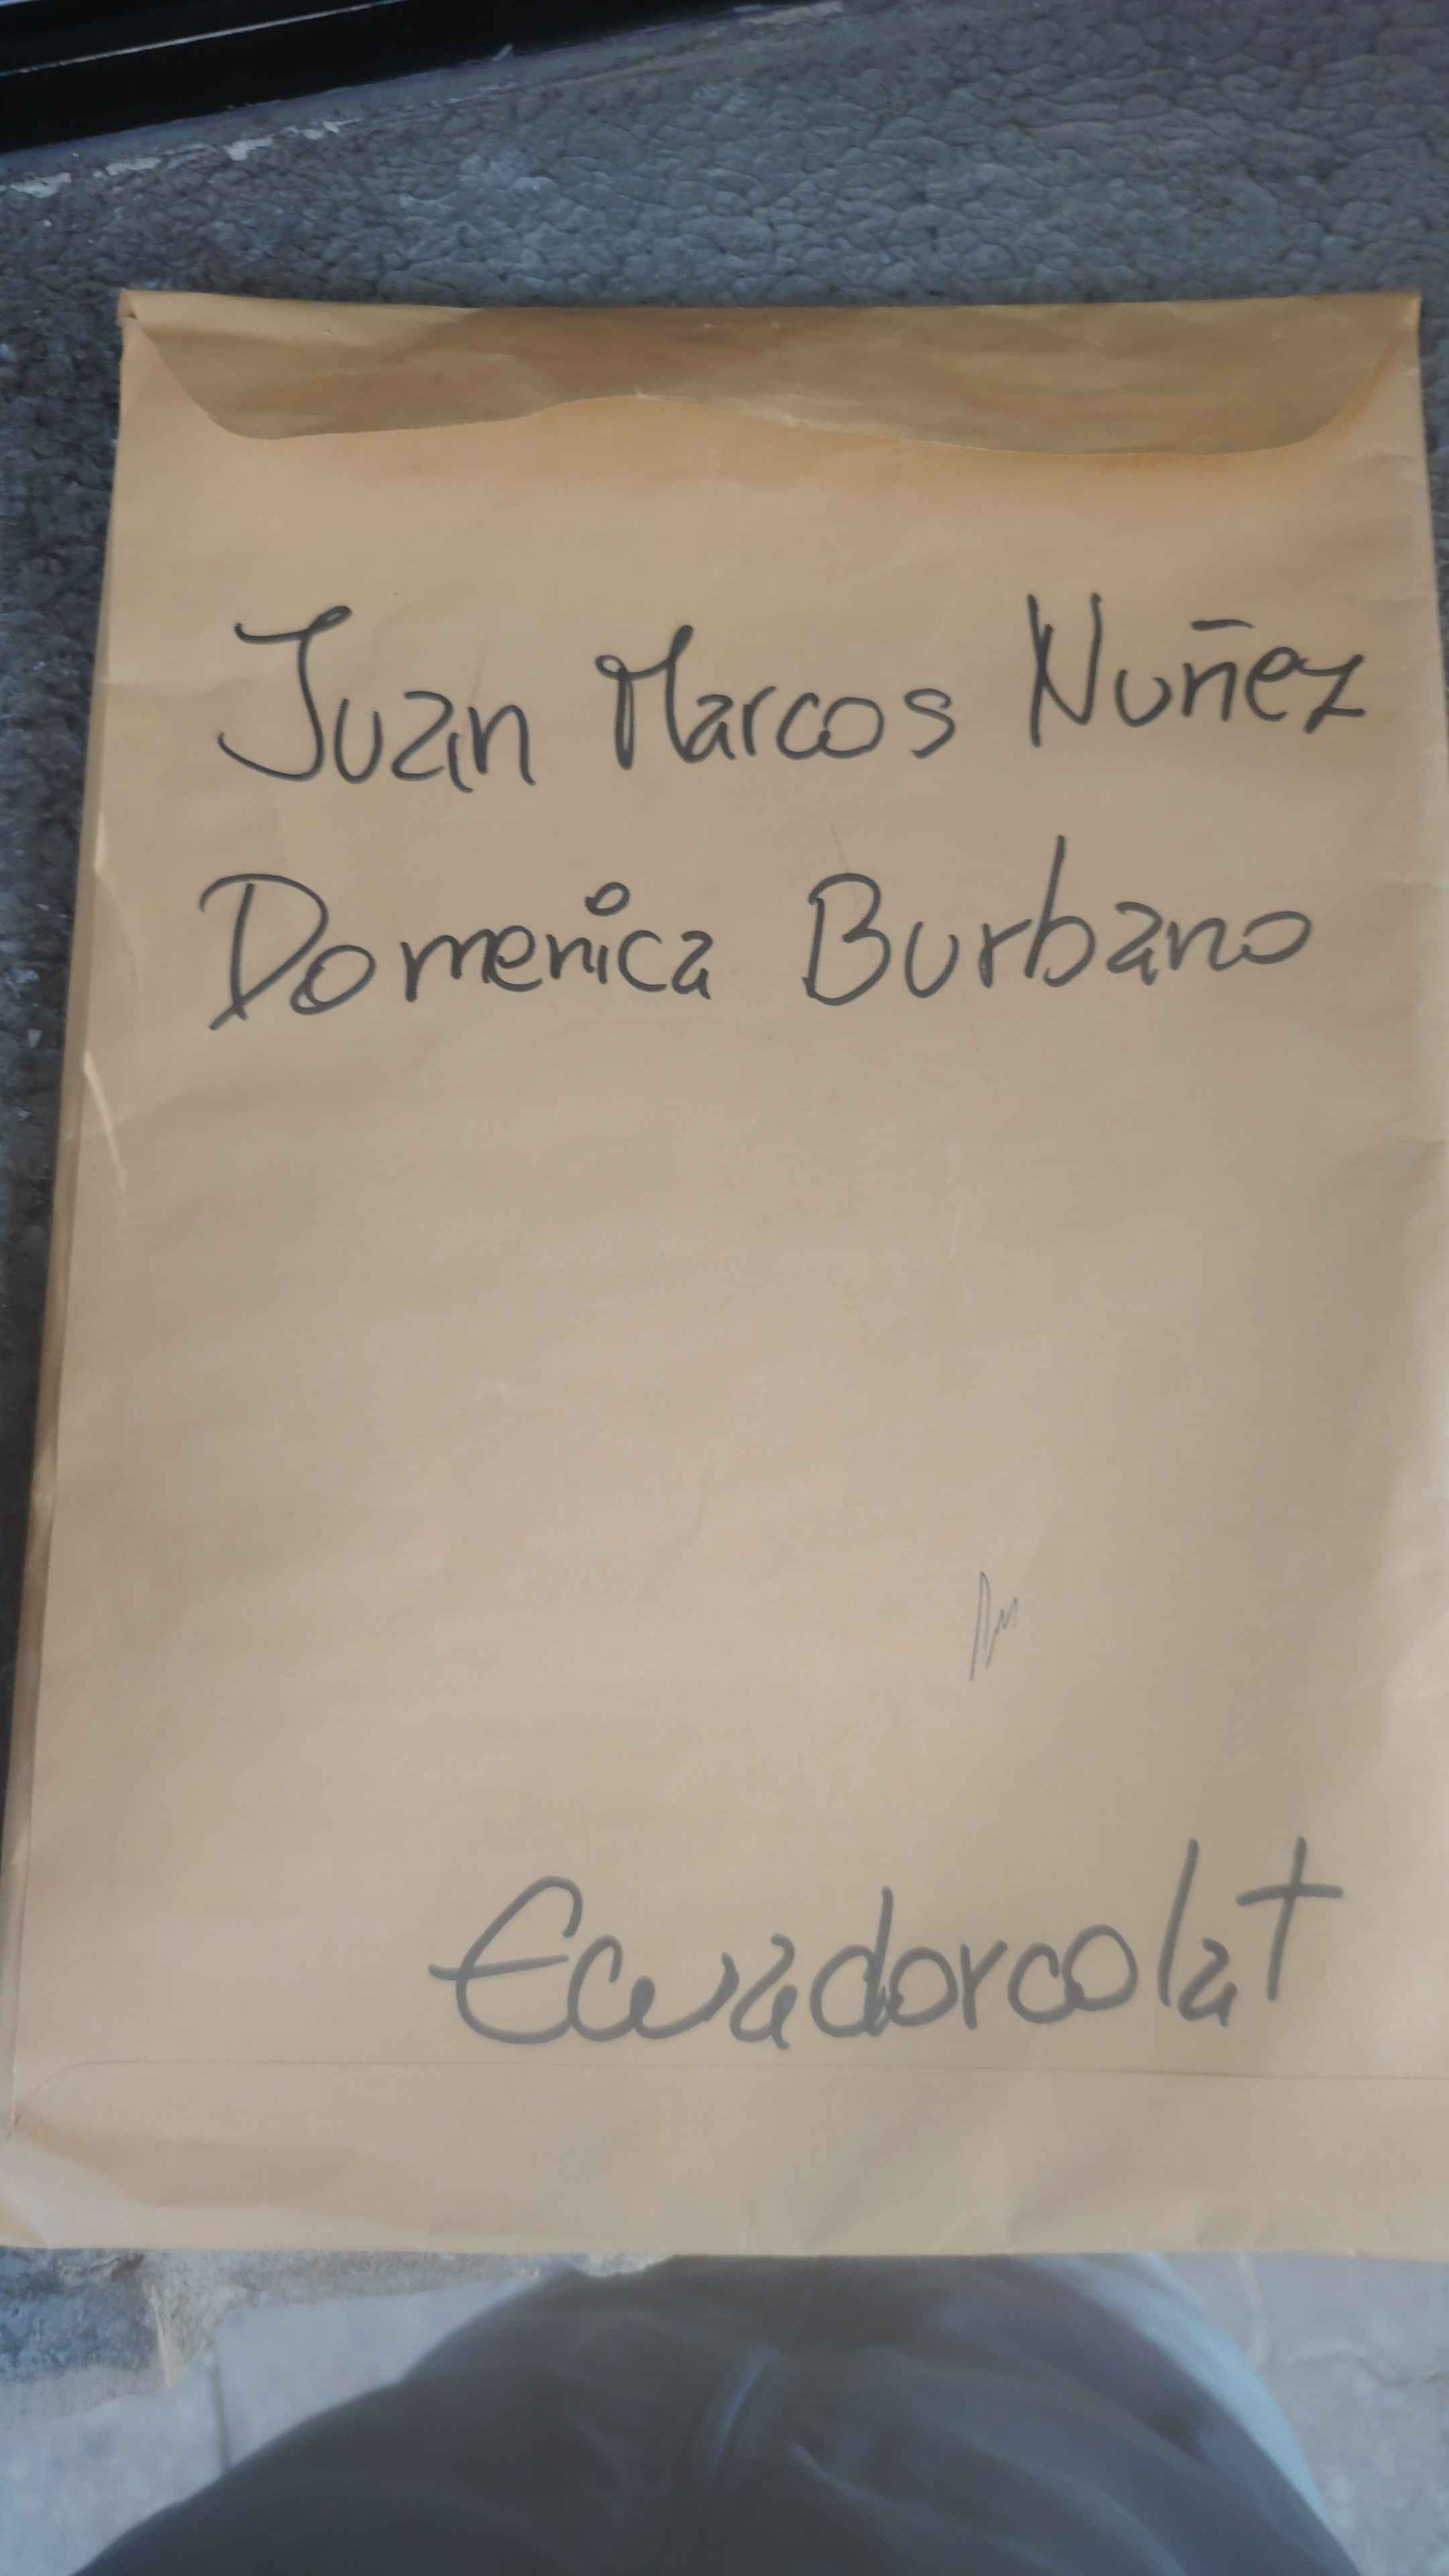 Juan Marcos Nuñez
Domenica Burbano
Ecuadorcolat